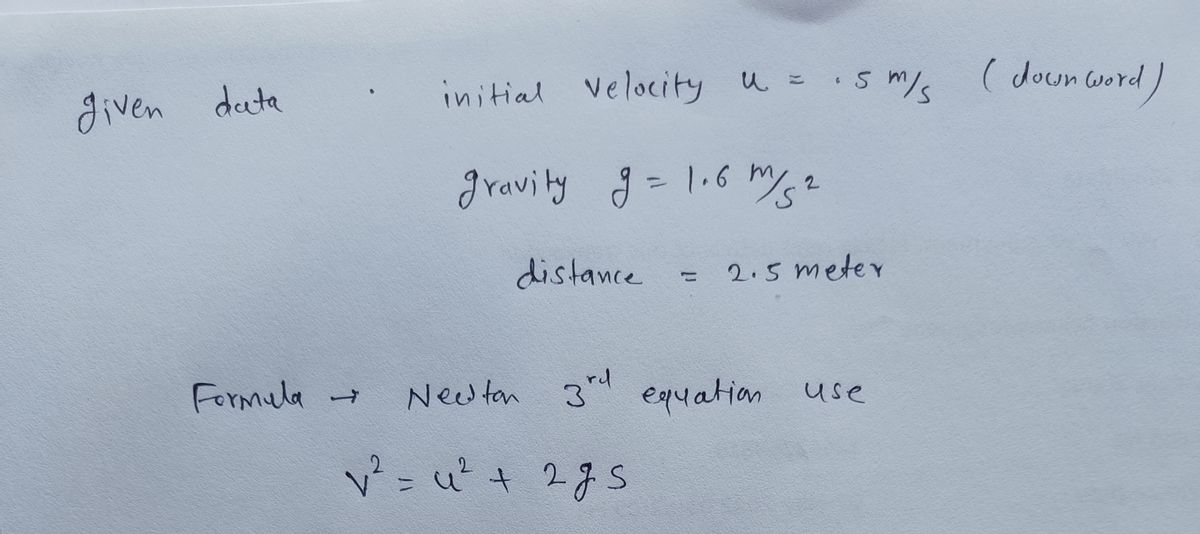 given data . initial velocity u = .5 m/s (downword)
gravity g = 1.6 m/s²
distance = 2.5 meter
Formula → Newton 3rd equation use
v² = u² + 2gs